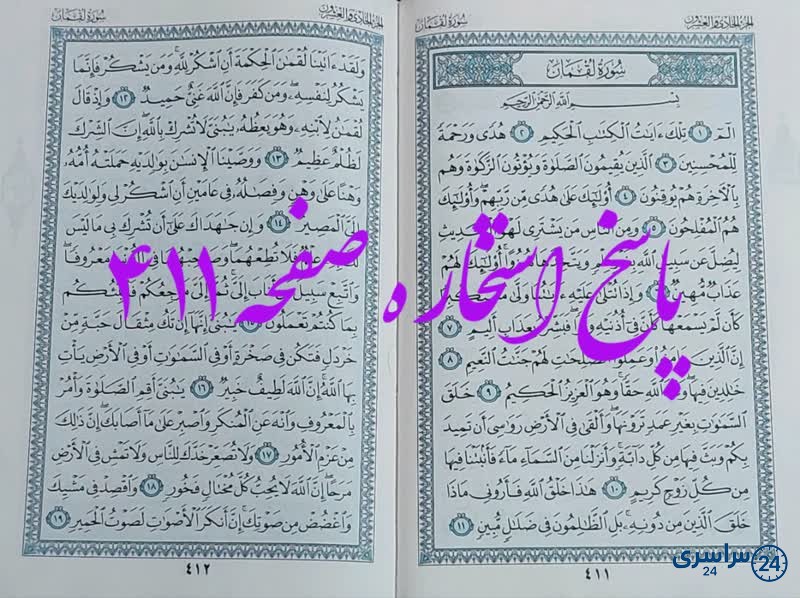 الجزء الحادي والعشرون
سورة لقمان
سُورَةُ لُقْمَانَ
بِسْمِ اللَّهِ الرَّحْمَٰنِ الرَّحِيمِ
الٓمٓ ١ تِلْكَ ءَايَٰتُ الْكِتَٰبِ الْحَكِيمِ ٢ هُدًى وَرَحْمَةً
لِّلْمُحْسِنِينَ ٣ الَّذِينَ يُقِيمُونَ الصَّلَوٰةَ وَيُؤْتُونَ الزَّكَوٰةَ وَهُم
بِالْآخِرَةِ هُمْ يُوقِنُونَ ٤ أُولَٰٓئِكَ عَلَىٰ هُدًى مِّن رَّبِّهِمْ وَأُولَٰٓئِكَ
هُمُ الْمُفْلِحُونَ ٥ وَمِنَ النَّاسِ مَن يَشْتَرِي لَهْوَ الْحَدِيثِ
لِيُضِلَّ عَن سَبِيلِ اللَّهِ بِغَيْرِ عِلْمٍ وَيَتَّخِذَهَا هُزُوًا أُولَٰٓئِكَ لَهُمْ
عَذَابٌ مُّهِينٌ ٦ وَإِذَا تُتْلَىٰ عَلَيْهِ ءَايَٰتُنَا وَلَّىٰ مُسْتَكْبِرًا
كَأَن لَّمْ يَسْمَعْهَا كَأَنَّ فِي أُذُنَيْهِ وَقْرًا فَبَشِّرْهُ بِعَذَابٍ أَلِيمٍ ٧
إِنَّ الَّذِينَ ءَامَنُوا وَعَمِلُوا الصَّٰلِحَٰتِ لَهُمْ جَنَّٰتُ النَّعِيمِ ٨
خَٰلِدِينَ فِيهَا وَعْدَ اللَّهِ حَقًّا وَهُوَ الْعَزِيزُ الْحَكِيمُ ٩ خَلَقَ
السَّمَٰوَٰتِ بِغَيْرِ عَمَدٍ تَرَوْنَهَا وَأَلْقَىٰ فِي الْأَرْضِ رَوَٰسِيَ أَن تَمِيدَ
بِكُمْ وَبَثَّ فِيهَا مِن كُلِّ دَآبَّةٍ وَأَنزَلْنَا مِنَ السَّمَآءِ مَآءً فَأَنۢبَتْنَا فِيهَا
مِن كُلِّ زَوْجٍ كَرِيمٍ ١٠ هَٰذَا خَلْقُ اللَّهِ فَأَرُونِي مَاذَا
خَلَقَ الَّذِينَ مِن دُونِهِ بَلِ الظَّٰلِمُونَ فِي ضَلَٰلٍ مُّبِينٍ ١١
٤١١
الجزء الحادي والعشرون
سورة لقمان
وَلَقَدْ ءَاتَيْنَا لُقْمَٰنَ الْحِكْمَةَ أَنِ اشْكُرْ لِلَّهِ وَمَن يَشْكُرْ فَإِنَّمَا
يَشْكُرُ لِنَفْسِهِ وَمَن كَفَرَ فَإِنَّ اللَّهَ غَنِيٌّ حَمِيدٌ ١٢ وَإِذْ قَالَ
لُقْمَٰنُ لِابْنِهِ وَهُوَ يَعِظُهُ يَٰبُنَيَّ لَا تُشْرِكْ بِاللَّهِ إِنَّ الشِّرْكَ
لَظُلْمٌ عَظِيمٌ ١٣ وَوَصَّيْنَا الْإِنسَٰنَ بِوَٰلِدَيْهِ حَمَلَتْهُ أُمُّهُ
وَهْنًا عَلَىٰ وَهْنٍ وَفِصَٰلُهُ فِي عَامَيْنِ أَنِ اشْكُرْ لِي وَلِوَٰلِدَيْكَ
إِلَيَّ الْمَصِيرُ ١٤ وَإِن جَٰهَدَاكَ عَلَىٰ أَن تُشْرِكَ بِي مَا لَيْسَ
لَكَ بِهِ عِلْمٌ فَلَا تُطِعْهُمَا وَصَاحِبْهُمَا فِي الدُّنْيَا مَعْرُوفًا
وَاتَّبِعْ سَبِيلَ مَنْ أَنَابَ إِلَيَّ ثُمَّ إِلَيَّ مَرْجِعُكُمْ فَأُنَبِّئُكُم
بِمَا كُنتُمْ تَعْمَلُونَ ١٥ يَٰبُنَيَّ إِنَّهَا إِن تَكُ مِثْقَالَ حَبَّةٍ مِّنْ
خَرْدَلٍ فَتَكُن فِي صَخْرَةٍ أَوْ فِي السَّمَٰوَٰتِ أَوْ فِي الْأَرْضِ يَأْتِ
بِهَا اللَّهُ إِنَّ اللَّهَ لَطِيفٌ خَبِيرٌ ١٦ يَٰبُنَيَّ أَقِمِ الصَّلَوٰةَ وَأْمُرْ
بِالْمَعْرُوفِ وَانْهَ عَنِ الْمُنكَرِ وَاصْبِرْ عَلَىٰ مَآ أَصَابَكَ إِنَّ ذَٰلِكَ
مِنْ عَزْمِ الْأُمُورِ ١٧ وَلَا تُصَعِّرْ خَدَّكَ لِلنَّاسِ وَلَا تَمْشِ فِي الْأَرْضِ
مَرَحًا إِنَّ اللَّهَ لَا يُحِبُّ كُلَّ مُخْتَالٍ فَخُورٍ ١٨ وَاقْصِدْ فِي مَشْيِكَ
وَاغْضُضْ مِن صَوْتِكَ إِنَّ أَنكَرَ الْأَصْوَٰتِ لَصَوْتُ الْحَمِيرِ ١٩
٤١٢
پاسخ استخاره صفحه ۴۱۱
سراسری 24
24